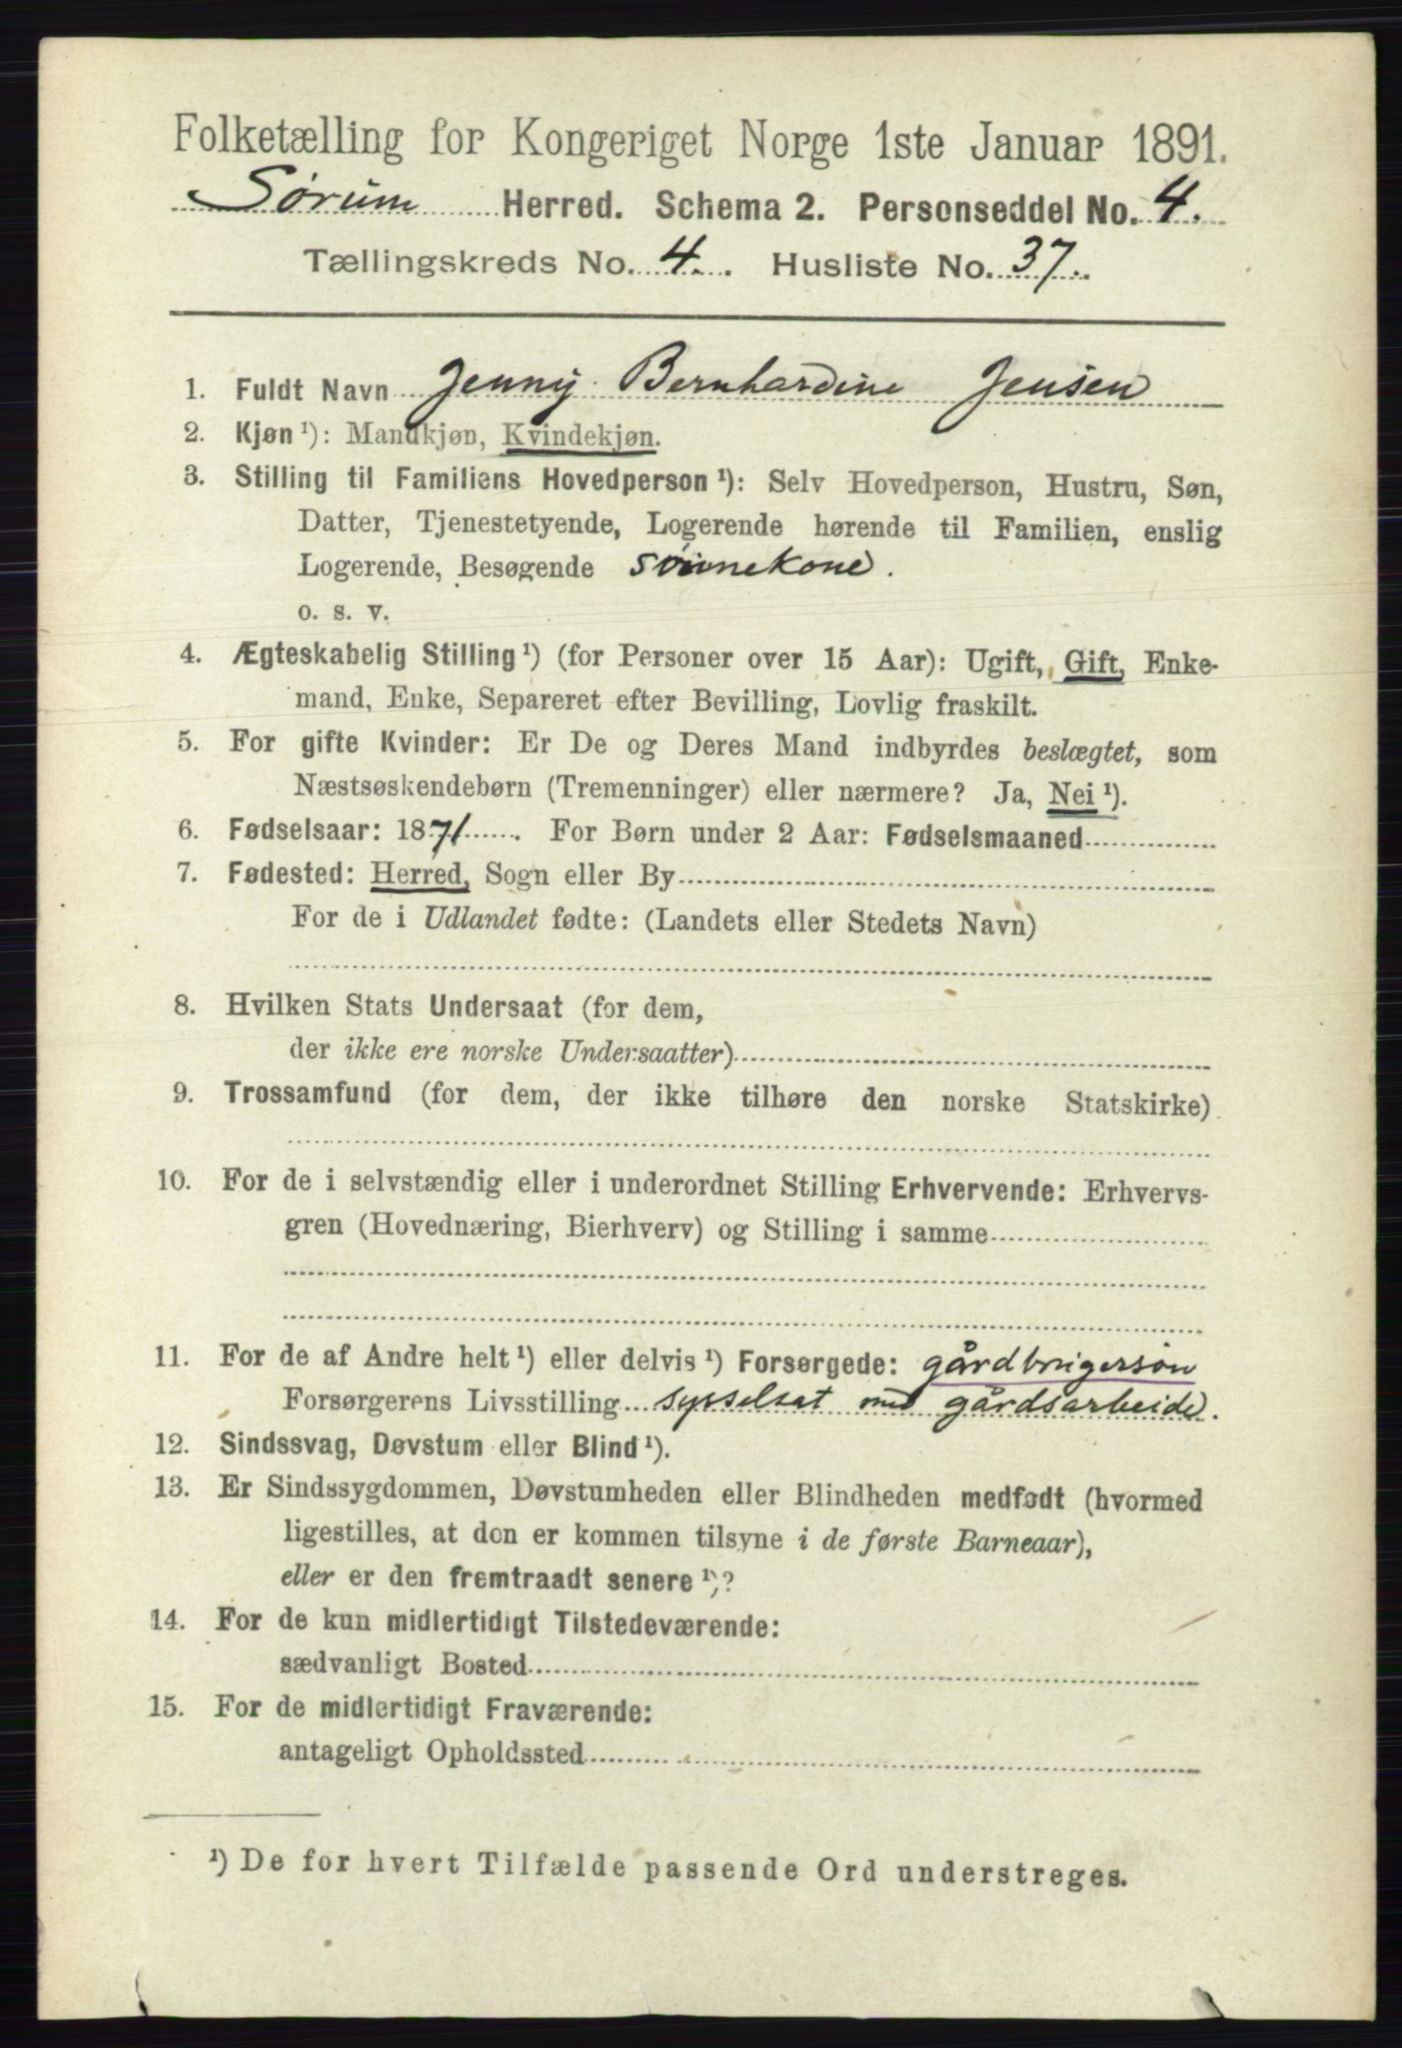 Folketælling for Kongeriget Norge 1ste Januar 1891.
Sørum Herred. Schema 2. Personseddel No. 4.
Tællingskreds No. 4. Husliste No. 37.
1. Fuldt Navn Jenny Bernhardine Jensen
2. Kjøn ¹): Mandkjøn, Kvindekjøn.
3. Stilling til Familiens Hovedperson ¹): Selv Hovedperson, Hustru, Søn,
Datter, Tjenestetyende, Logerende hørende til Familien, enslig
Logerende, Besøgende sønnekone.
o. s. v.
4. Ægteskabelig Stilling ¹) (for Personer over 15 Aar): Ugift, Gift, Enke-
mand, Enke, Separeret efter Bevilling, Lovlig fraskilt.
5. For gifte Kvinder: Er De og Deres Mand indbyrdes beslægtet, som
Næstsøskendebørn (Tremenninger) eller nærmere? Ja, Nei ¹).
6. Fødselsaar: 1871. For Børn under 2 Aar: Fødselsmaaned
7. Fødested: Herred, Sogn eller By
For de i Udlandet fødte: (Landets eller Stedets Navn)
8. Hvilken Stats Undersaat (for dem,
der ikke ere norske Undersaatter)
9. Trossamfund (for dem, der ikke tilhøre den norske Statskirke)
10. For de i selvstændig eller i underordnet Stilling Erhvervende: Erhvervs-
gren (Hovednæring, Bierhverv) og Stilling i samme
11. For de af Andre helt ¹) eller delvis ¹) Forsørgede: gårdbrugersøn
Forsørgerens Livsstilling sysselsat med gårdsarbeide.
12. Sindssvag, Døvstum eller Blind ¹).
13. Er Sindssygdommen, Døvstumheden eller Blindheden medfødt (hvormed
ligestilles, at den er kommen tilsyne i de første Barneaar),
eller er den fremtraadt senere ¹)?
14. For de kun midlertidigt Tilstedeværende:
sædvanligt Bosted
15. For de midlertidigt Fraværende:
antageligt Opholdssted
¹) De for hvert Tilfælde passende Ord understreges.